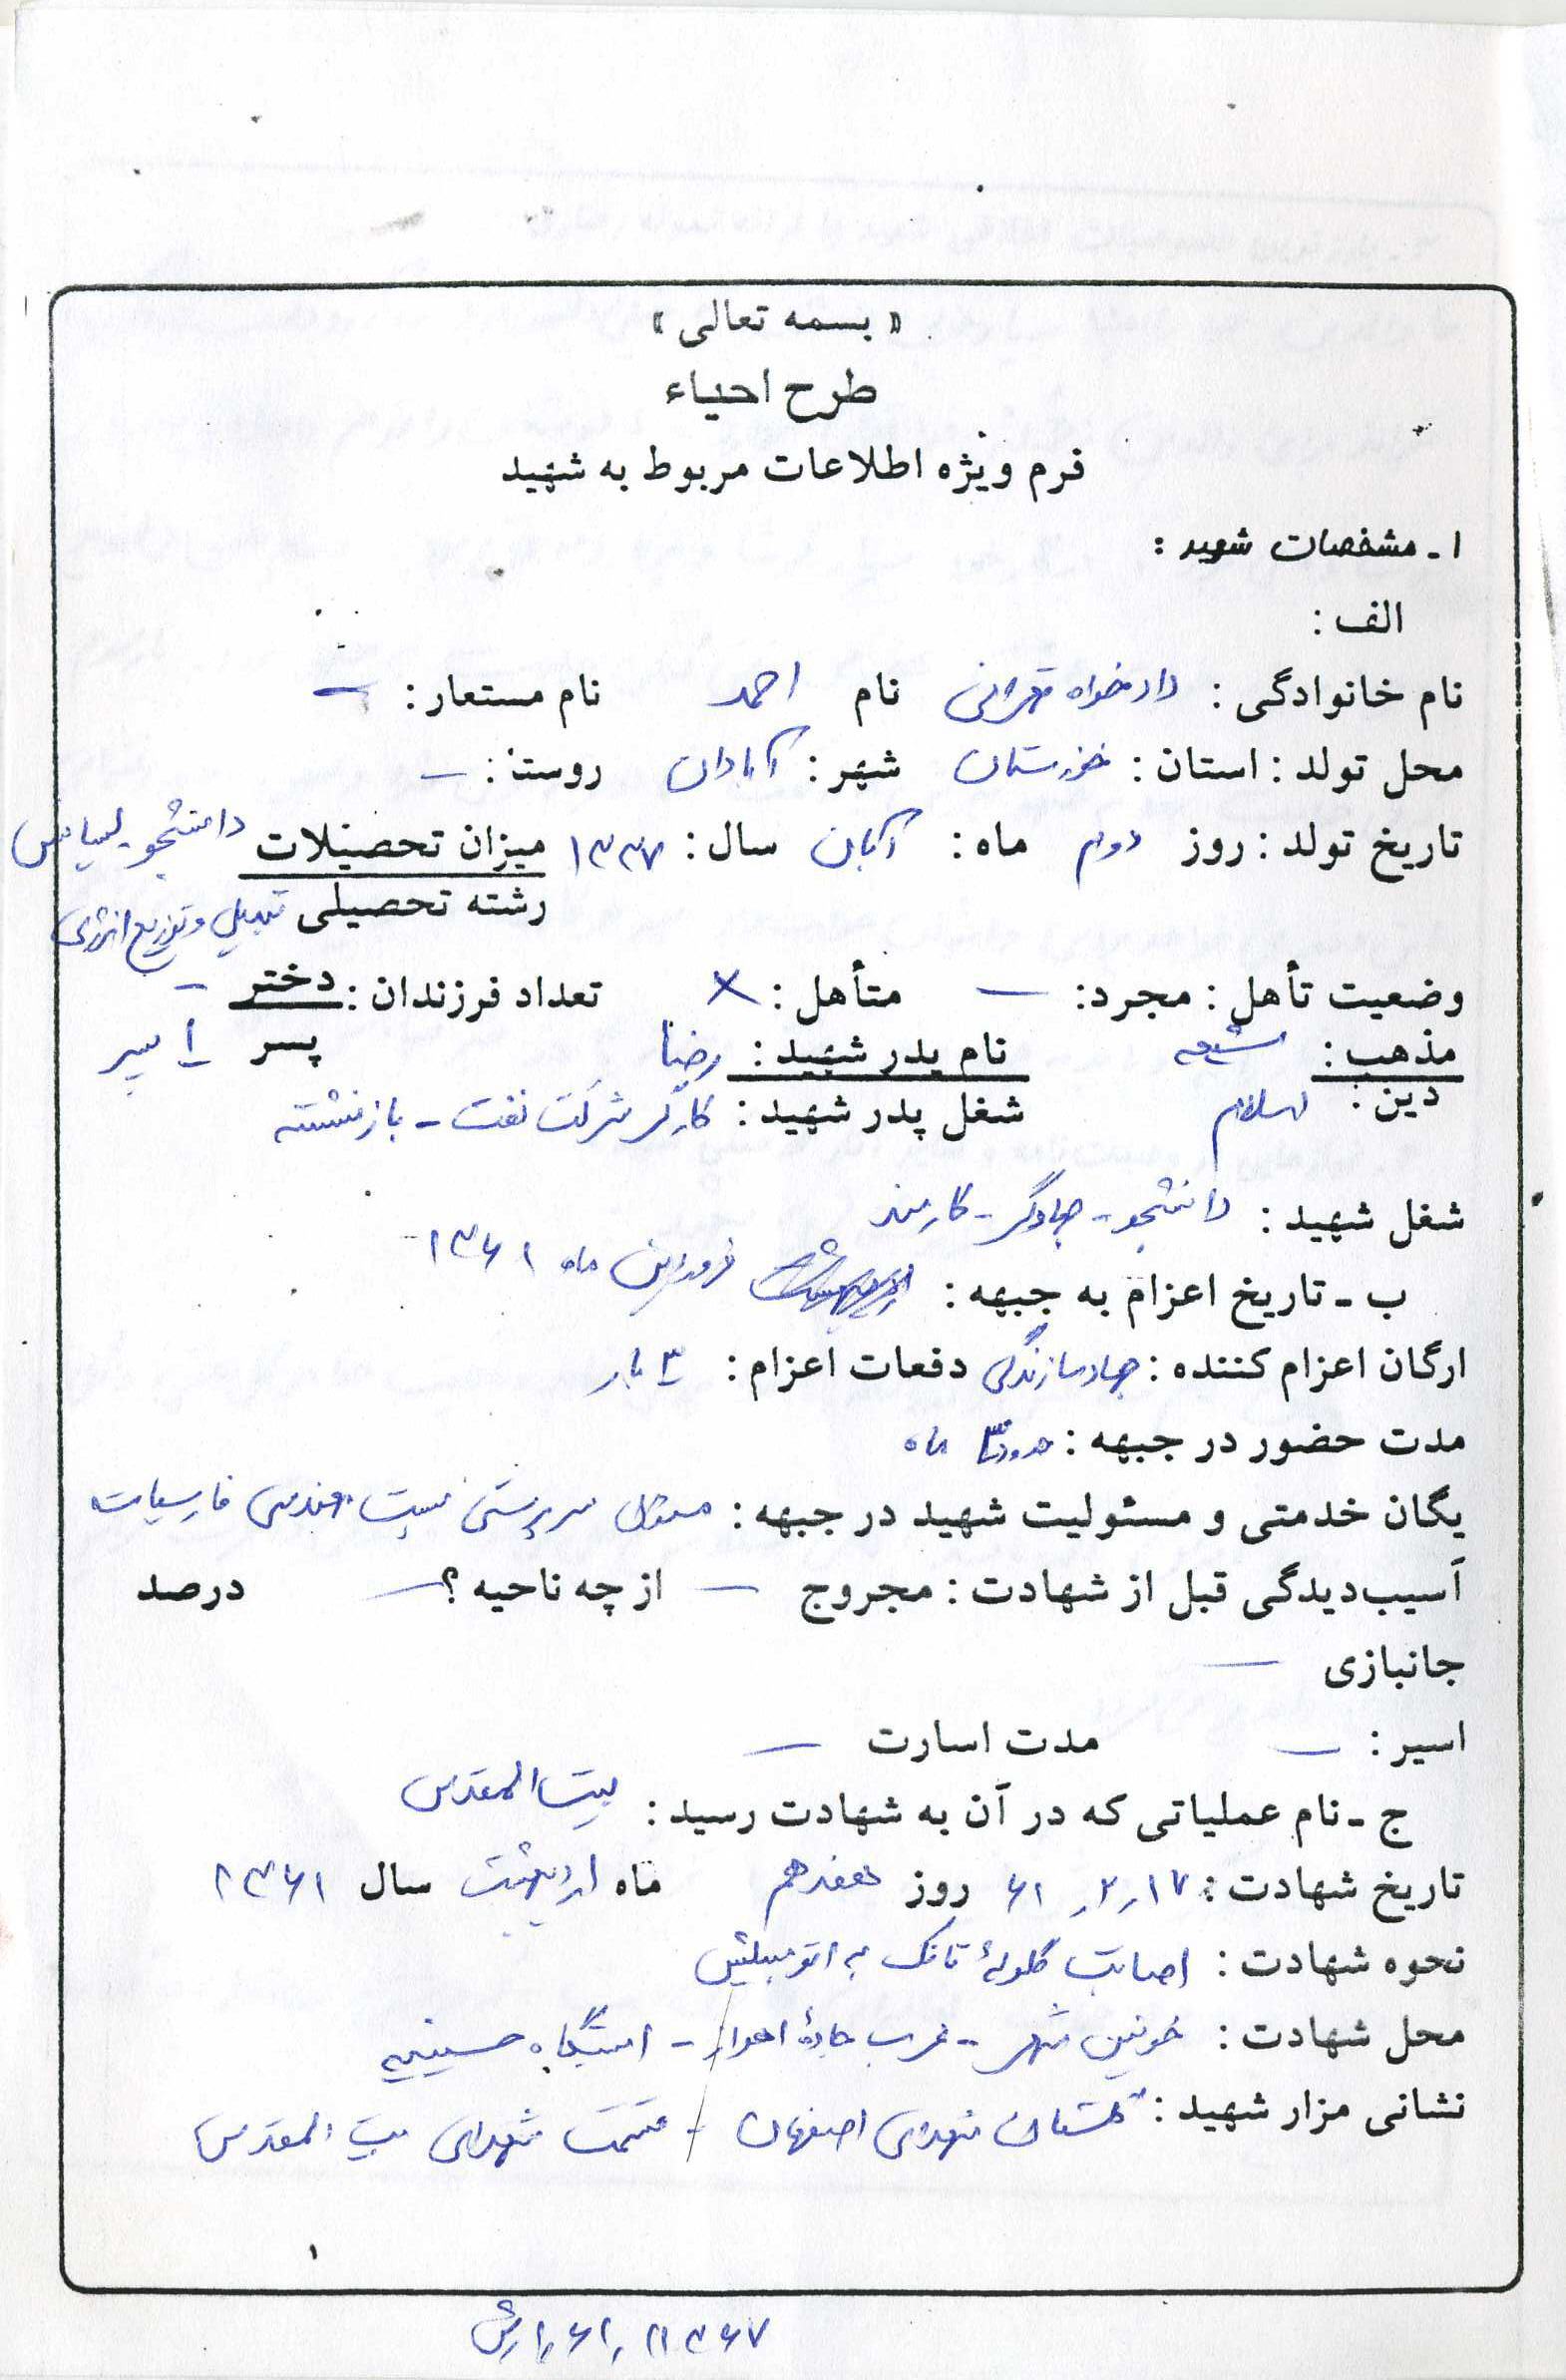 « بسمه تعالی »
طرح احیاء
فرم ویژه اطلاعات مربوط به شهید
۱ـ مشخصات شهید :
الف :
نام خانوادگی : دادخواه تهرانی نام احمد نام مستعار : —
محل تولد : استان : خوزستان شهر : آبادان روستا : —
تاریخ تولد : روز دوم ماه : آبان سال : ۱۳۳۷ میزان تحصیلات دانشجو - لیسانس
رشته تحصیلی تبدیل و توزیع انرژی
وضعیت تأهل : مجرد : — متأهل : × تعداد فرزندان : دختر —
مذهب : شیعه نام پدر شهید : رضا پسر ۱ پسر
دین : اسلام شغل پدر شهید : کارگر شرکت نفت - بازنشسته
شغل شهید : دانشجو - جهادگر - کارمند
ب ـ تاریخ اعزام به جبهه : فروردین ماه ۱۳۶۱
ارگان اعزام کننده : جهاد سازندگی دفعات اعزام : ۳ بار
مدت حضور در جبهه : حدود ۳ ماه
یگان خدمتی و مسئولیت شهید در جبهه : مسئول سرپرستی مهندسی فارسیات
آسیب‌دیدگی قبل از شهادت : مجروح — از چه ناحیه ؟ — درصد
جانبازی —
اسیر : — مدت اسارت —
ج ـ نام عملیاتی که در آن به شهادت رسید : بیت المقدس
تاریخ شهادت : ۶۱/۲/۱۷ روز هفدهم ماه اردیبهشت سال ۱۳۶۱
نحوه شهادت : اصابت گلولهٔ تانک به اتومبیلش
محل شهادت : خونین شهر - غرب جادهٔ اهواز - ایستگاه حسینیه
نشانی مزار شهید : گلستان شهدای اصفهان - قسمت شهدای بیت المقدس
۱